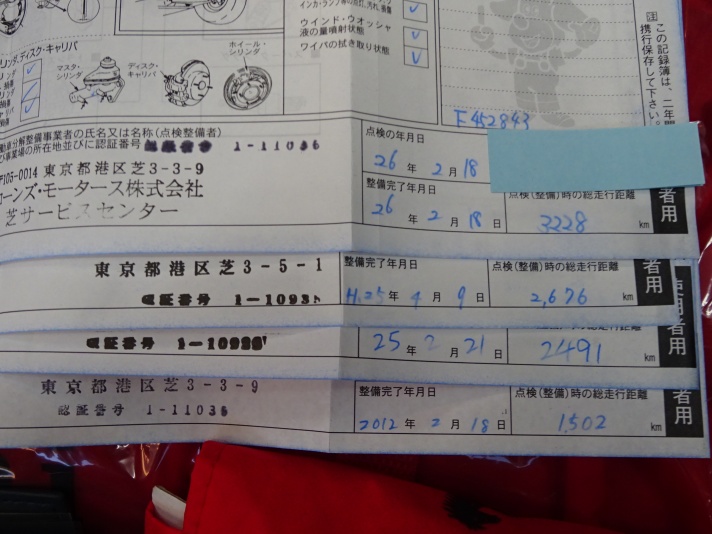 ウインド・ウオッシャ
液の量噴射状態
ワイパの拭き取り状態
ディスク・キャリパ
マスタ・
シリンダ
ディスク・
キャリパ
ホイール・
シリンダ
F452843
この記録簿は、二年間
携行保存して下さい。
事業者の氏名又は名称(点検整備者)
事業場の所在地並びに認証番号
1-11036
〒105-0014 東京都港区芝3-3-9
コーンズ・モータース株式会社
芝サービスセンター
点検の年月日
26年 2月18
整備完了年月日
26年 2月 18日
点検(整備)時の総走行距離
3228 km
者用
東京都港区芝3-5-1
認証番号
整備完了年月日
H.25年 4月 9日
点検(整備)時の総走行距離
2,676 km
者用
使用者用
25年 2月 21日
2491 km
東京都港区芝3-3-9
認証番号 1-11036
整備完了年月日
2012年 2月 18日
点検(整備)時の総走行距離
1,502 km
者用